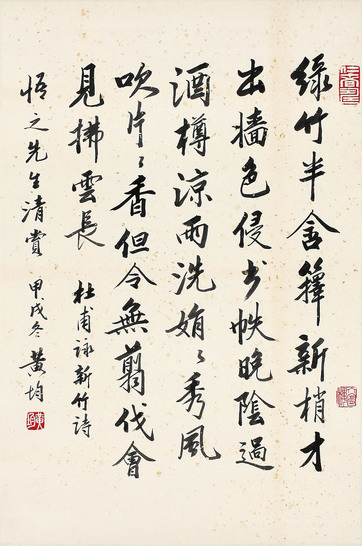 綠竹半含籜新梢才
出墙色侵书帙晚陰過
酒樽涼雨洗娟〻秀風
吹片〻香但令無翦伐會
見拂雲長 杜甫詠新竹詩
悟之先生清賞 甲戌冬 黄均